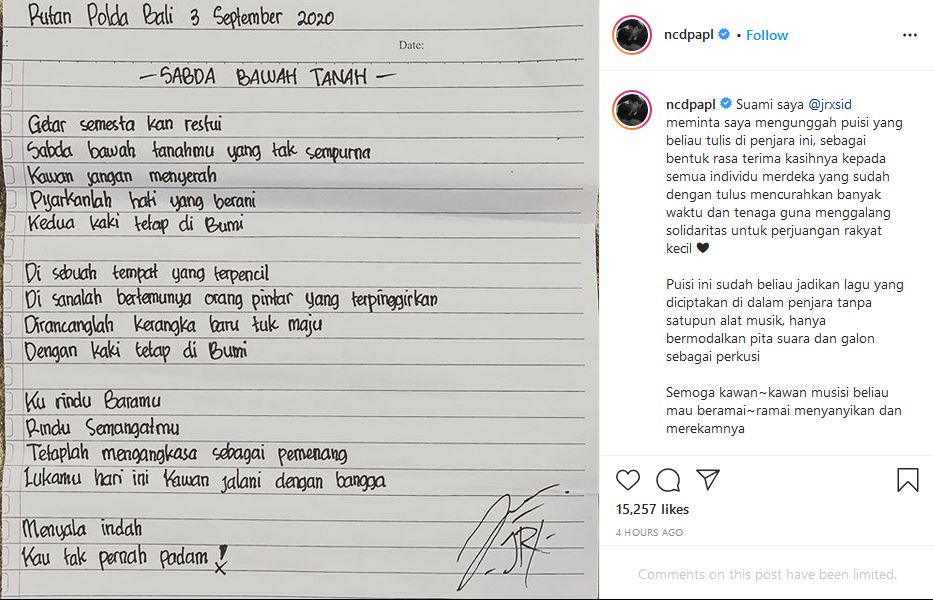 Rutan Polda Bali 3 September 2020
Date:
— SABDA BAWAH TANAH —
Getar semesta kan restui
Sabda bawah tanahmu yang tak sempurna
Kawan jangan menyerah
Pijarkanlah hati yang berani
Kedua kaki tetap di Bumi
Di sebuah tempat yang terpencil
Di sanalah bertemunya orang pintar yang terpinggirkan
Dirancanglah kerangka baru tuk maju
Dengan kaki tetap di Bumi
Ku rindu Baramu
Rindu Semangatmu
Tetaplah mengangkasa sebagai pemenang
Lukamu hari ini Kawan jalani dengan bangga
Menyala indah
Kau tak pernah padam!
JRX
ncdpapl • Follow
ncdpapl Suami saya @jrxsid
meminta saya mengunggah puisi yang
beliau tulis di penjara ini, sebagai
bentuk rasa terima kasihnya kepada
semua individu merdeka yang sudah
dengan tulus mencurahkan banyak
waktu dan tenaga guna menggalang
solidaritas untuk perjuangan rakyat
kecil 🖤
Puisi ini sudah beliau jadikan lagu yang
diciptakan di dalam penjara tanpa
satupun alat musik, hanya
bermodalkan pita suara dan galon
sebagai perkusi
Semoga kawan~kawan musisi beliau
mau beramai~ramai menyanyikan dan
merekamnya
15,257 likes
4 HOURS AGO
Comments on this post have been limited.